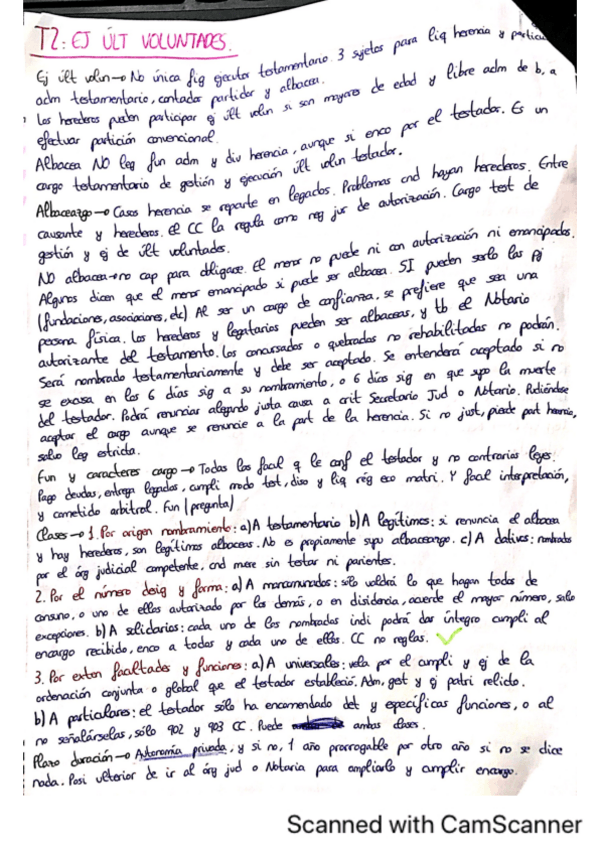 T2: EJ ÚLT VOLUNTADES.
Ej últ volun → No única fig ejecutor testamentario. 3 sujetos para liq herencia y particu
adm testamentario, contador partidor y albacea.
Los herederos pueden participar ej últ volun si son mayores de edad y libre adm de b, a
efectuar partición convencional.
Albacea NO leg fun adm y div herencia, aunque si enco por el testador. Es un
cargo testamentario de gestión y ejecución últ volun testador.
Albaceazgo → Casos herencia se reparte en legados. Problemas cnd hayan herederos. Entre
causante y herederos. el CC la regula como neg jur de autorización. Cargo test de
gestión y ej de últ voluntades.
NO albacea → no cap para obligarse. El menor no puede ni con autorización ni emancipados.
Algunos dicen que el menor emancipado si puede ser albacea. SI pueden serlo las PJ
(fundaciones, asociaciones, etc) Al ser un cargo de confianza, se prefiere que sea una
persona física. Los herederos y legatarios pueden ser albaceas, y tb el Notario
autorizante del testamento. Los concursados o quebrados no rehabilitados no podrán.
Será nombrado testamentariamente y debe ser aceptado. Se entenderá aceptado si no
se excusa en los 6 días sig a su nombramiento, o 6 días sig en que supo la muerte
del testador. Podrá renunciar alegando justa causa a crit Secretario Jud o Notario. Pudiéndose
aceptar el cargo aunque se renuncie a la part de la herencia. Si no just, pierde part herencia,
salvo leg estricta.
Fun y caracteres cargo → Todas las facul q le conf el testador y no contrarias leyes:
Pago deudas, entrega legados, cumpli modo test, diso y liq rég eco matri. Y facul interpretación,
y cometido arbitral. Fun (pregunta)
Clases → 1. Por origen nombramiento: a) A testamentario b) A legítimos: si renuncia el albacea
y hay herederos, son legítimos albaceas. No es propiamente supu albaceazgo. c) A dativos: nombrados
por el órg judicial competente, cnd muere sin testar ni parientes.
2. Por el número desig y forma: a) A mancomunados: sólo valdrá lo que hagan todos de
consuno, o uno de ellos autorizado por los demás, o en disidencia, acuerde el mayor número, salvo
excepciones. b) A solidarios: cada uno de los nombrados indi podrá dar íntegro cumpli al
encargo recibido, enco a todos y cada uno de ellos. CC no reglas.
3. Por exten facultades y funciones: a) A universales: vela por el cumpli y ej de la
ordenación conjunta o global que el testador estableció. Adm, gest y ej patri relicto.
b) A particulares: el testador sólo ha encomendado det y específicas funciones, o al
no señalárselas, sólo 902 y 903 CC. Puede ambas clases.
Plazo duración → Autonomía privada, y si no, 1 año prorrogable por otro año si no se dice
nada. Posi ulterior de ir al órg jud o Notaria para ampliarlo y cumplir encargo.
Scanned with CamScanner